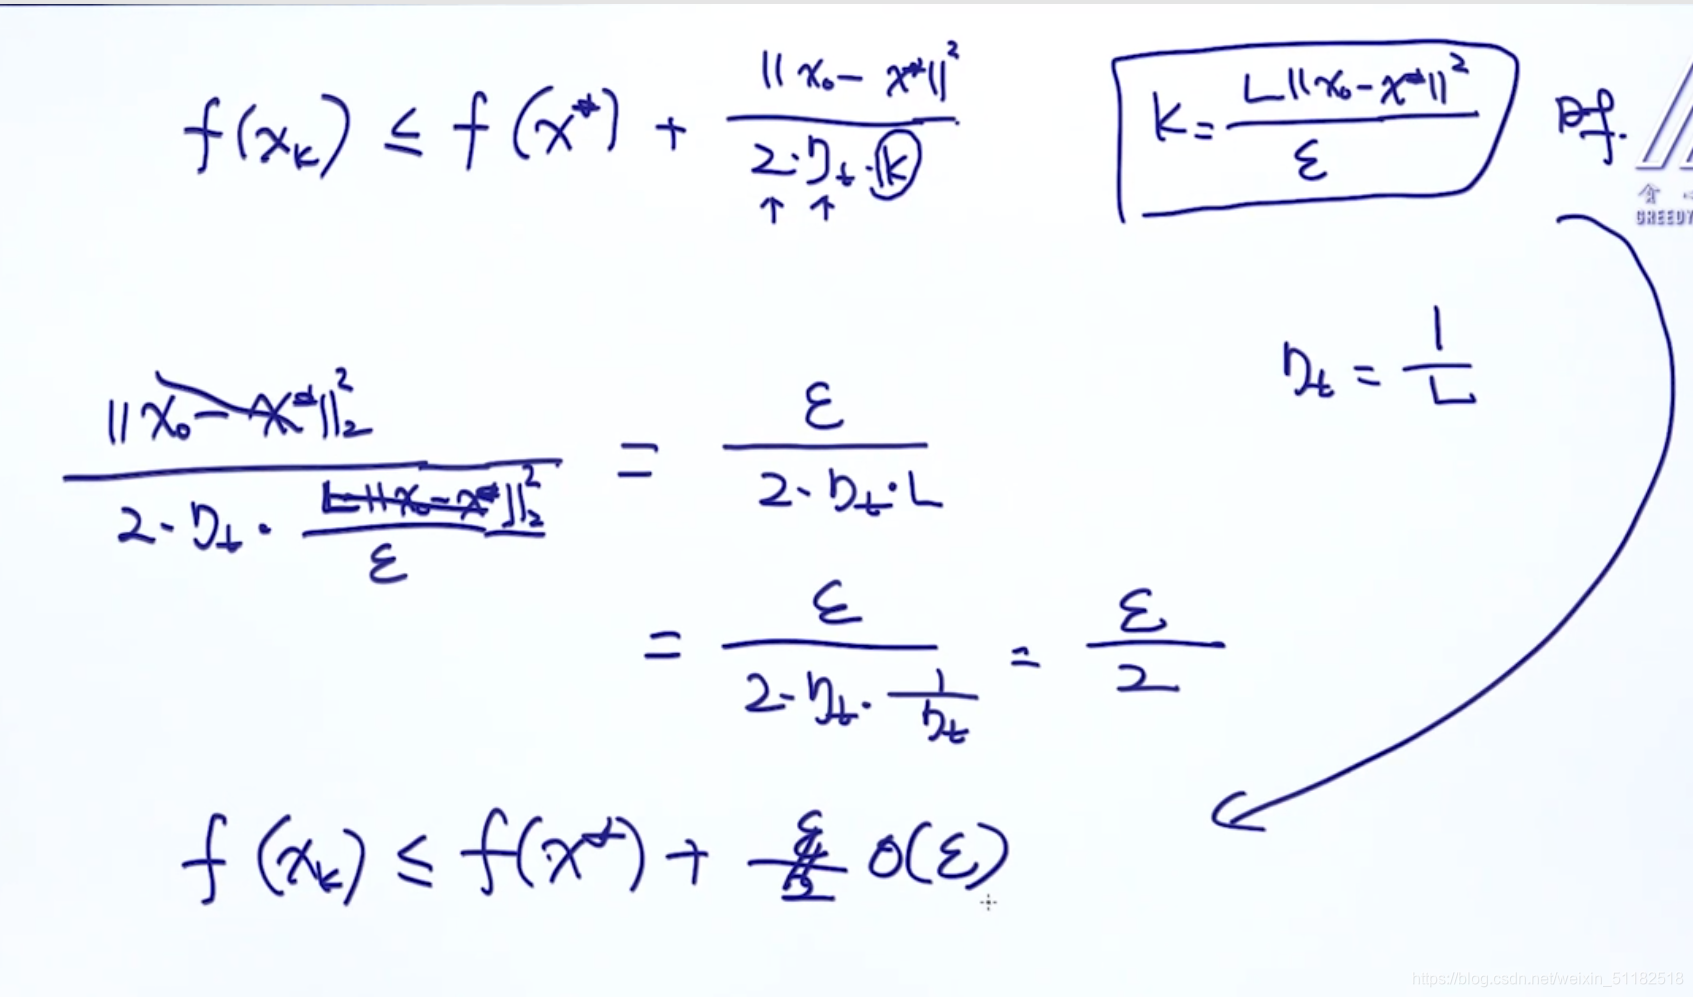 f(x_k) ≤ f(x*) + ||x_0 - x*||² / (2·η_t·k)    k = L||x_0 - x*||² / ε
GREEDY
η_t = 1/L
||x_0 - x*||₂² / (2·η_t · L||x_0 - x*||₂² / ε) = ε / (2·η_t·L)
= ε / (2·η_t · 1/η_t) = ε/2
f(x_k) ≤ f(x*) + O(ε)
https://blog.csdn.net/weixin_51182518